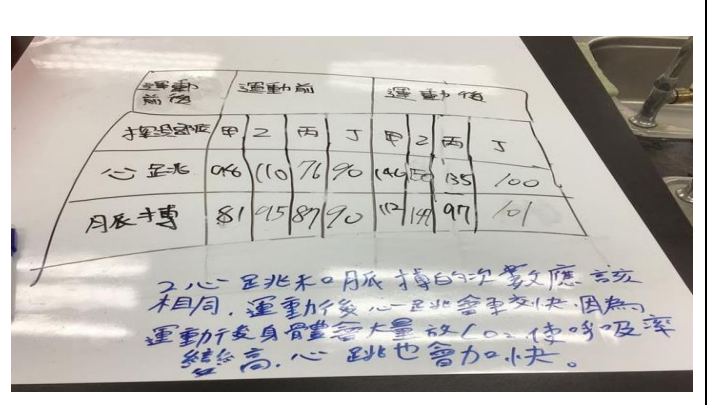 運動前後 運動前 運動後
探測部位 甲 乙 丙 丁 甲 乙 丙 丁
心跳 110 76 90 140 150 135 100
脈搏 81 95 87 90 112 149 97 101
2心跳和脈搏的次數應該
相同.運動後心跳會較快.因為
運動後身體會大量放CO2,使呼吸率
變高.心跳也會加快。